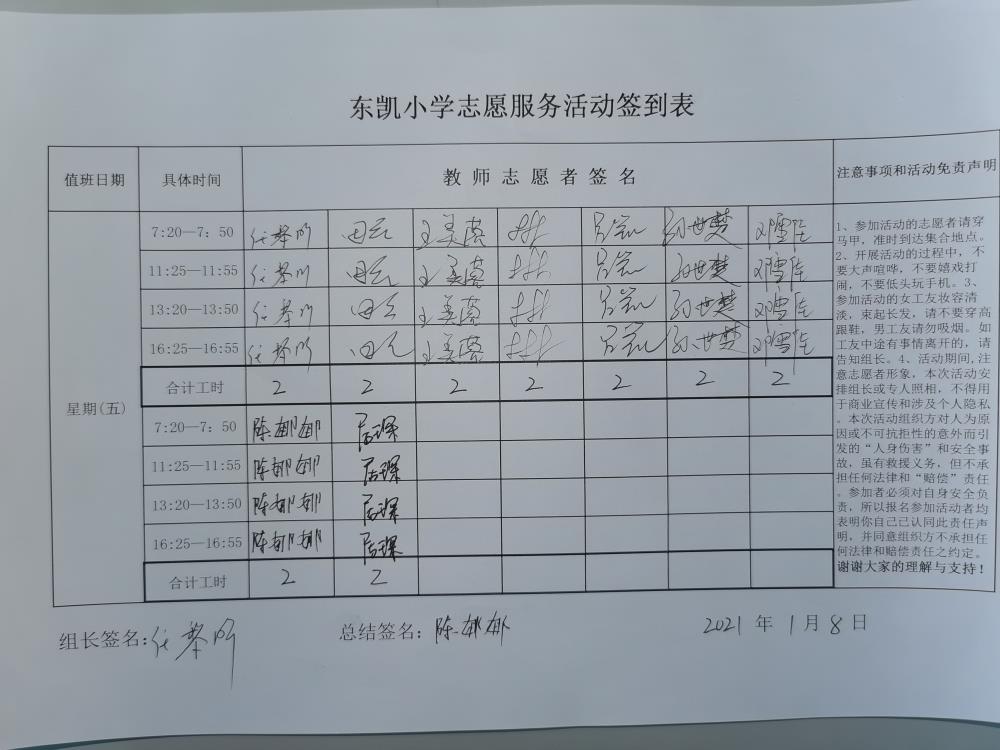 东凯小学志愿服务活动签到表
值班日期 具体时间 教师志愿者签名 注意事项和活动免责声明
星期(五)
7:20—7：50 田元 王美蓉 孙世楚 邓雪佳
11:25—11:55 田元 王美蓉 孙世楚 邓雪佳
13:20—13:50 田元 王美蓉 孙世楚 邓雪佳
16:25—16:55 田元 王美蓉 孙世楚 邓雪佳
合计工时 2 2 2 2 2 2 2
7:20—7：50 陈娜娜
11:25—11:55 陈娜娜
13:20—13:50 陈娜娜
16:25—16:55 陈娜娜
合计工时 2 2
1、参加活动的志愿者请穿
马甲，准时到达集合地点。
2、开展活动的过程中，不
要大声喧哗，不要嬉戏打
闹，不要低头玩手机。3、
参加活动的女工友妆容清
淡，束起长发，请不要穿高
跟鞋，男工友请勿吸烟。如
工友中途有事情离开的，请
告知组长。4、活动期间,注
意志愿者形象，本次活动安
排组长或专人照相，不得用
于商业宣传和涉及个人隐私
。本次活动组织方对人为原
因或不可抗拒性的意外而引
发的“人身伤害”和安全事
故，虽有救援义务，但不承
担任何法律和“赔偿”责任
。参加者必须对自身安全负
责，所以报名参加活动者均
表明你自己已认同此责任声
明，并同意组织方不承担任
何法律和赔偿责任之约定。
谢谢大家的理解与支持！
组长签名: 总结签名: 陈娜娜 2021 年 1 月 8 日